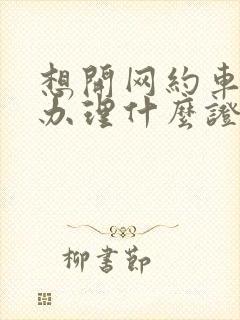 想開网約車
办理什麼證
柳書節